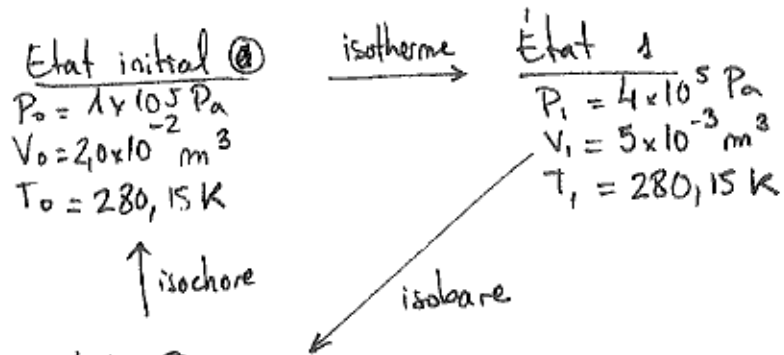 Etat initial ⓪
isotherme
État 1
P₀ = 1 x 10⁵ Pa
V₀ = 2,0x10⁻² m³
T₀ = 280,15 K
P₁ = 4x10⁵ Pa
V₁ = 5x10⁻³ m³
T₁ = 280,15 K
isochore
isobare